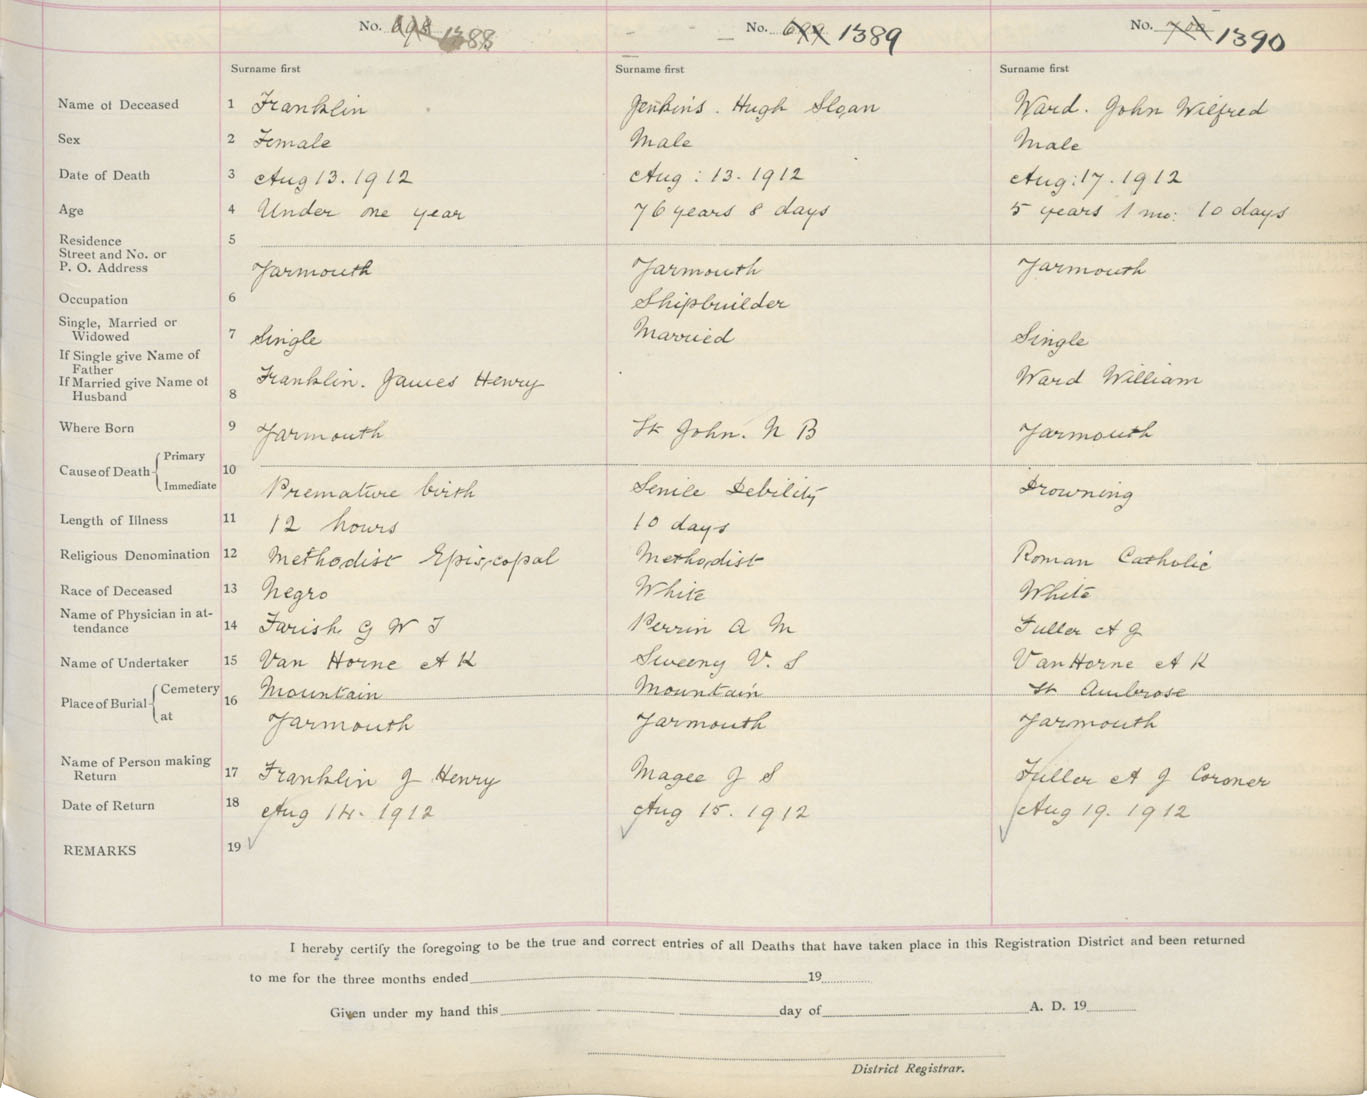 No. 698 1388 No. 699 1389 No. 700 1390
Surname first Surname first Surname first
Name of Deceased 1 Franklin Jenkins. Hugh Sloan Ward. John Wilfred
Sex 2 Female Male Male
Date of Death 3 Aug 13. 1912 Aug: 13. 1912 Aug: 17. 1912
Age 4 Under one year 76 years 8 days 5 years 1 mo: 10 days
Residence 5
Street and No. or
P. O. Address Yarmouth Yarmouth Yarmouth
Occupation 6 Shipbuilder
Single, Married or
Widowed 7 Single Married Single
If Single give Name of
Father
If Married give Name of Franklin. James Henry Ward William
Husband 8
Where Born 9 Yarmouth St John. N B Yarmouth
Primary
Cause of Death 10
Immediate Premature birth Senile Debility Drowning
Length of Illness 11 12 hours 10 days
Religious Denomination 12 Methodist Episcopal Methodist Roman Catholic
Race of Deceased 13 Negro White White
Name of Physician in at-
tendance 14 Farish G W T Perrin A M Fuller A J
Name of Undertaker 15 Van Horne A K Sweeny V. S Van Horne A K
Cemetery Mountain Mountain St Ambrose
Place of Burial 16
at Yarmouth Yarmouth Yarmouth
Name of Person making
Return 17 Franklin J Henry Magee J S Fuller A J Coroner
Date of Return 18 Aug 14. 1912 Aug 15. 1912 Aug 19. 1912
REMARKS 19
I hereby certify the foregoing to be the true and correct entries of all Deaths that have taken place in this Registration District and been returned
to me for the three months ended 19
Given under my hand this day of A. D. 19
District Registrar.